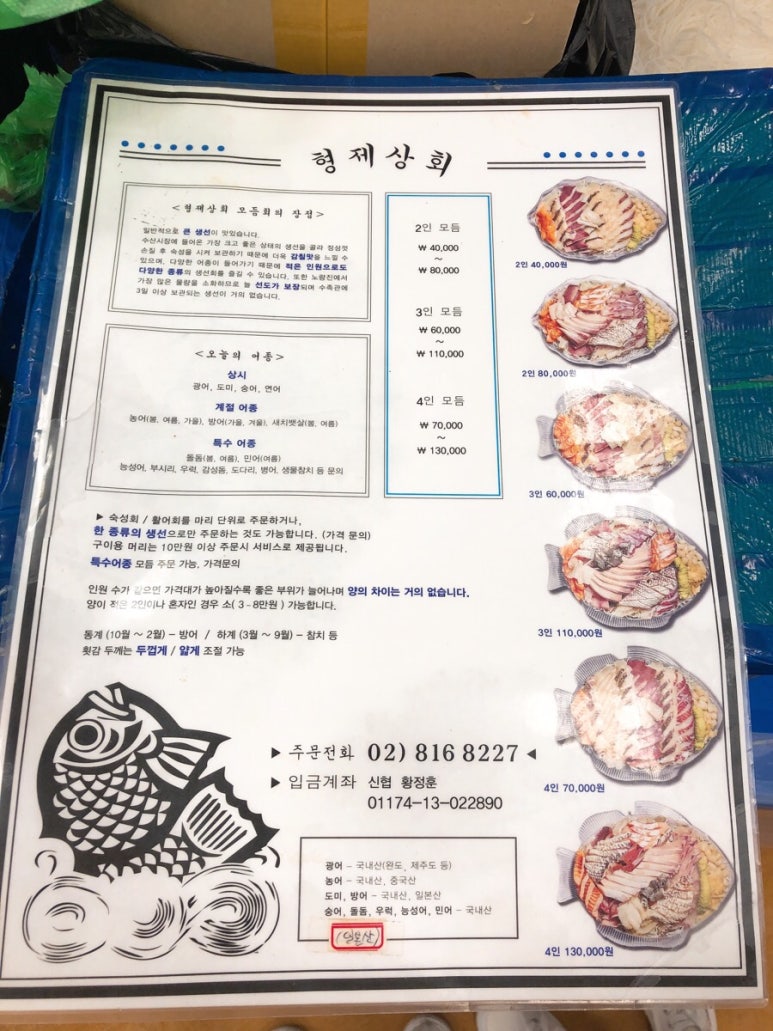 형제상회
<형제상회 모듬회의 장점>
일반적으로 큰 생선이 맛있습니다.
수산시장에 들어온 가장 크고 좋은 상태의 생선을 골라 정성껏
손질 후 숙성을 시켜 보관하기 때문에 더욱 감칠맛을 느낄 수
있으며, 다양한 어종이 들어가기 때문에 적은 인원으로도
다양한 종류의 생선회를 즐길 수 있습니다. 또한 노량진에서
가장 많은 물량을 소화하므로 늘 선도가 보장되며 수족관에
3일 이상 보관되는 생선이 거의 없습니다.
<오늘의 어종>
상시
광어, 도미, 숭어, 연어
계절 어종
농어(봄, 여름, 가을), 방어(가을, 겨울), 새치뱃살(봄, 여름)
특수 어종
돌돔(봄, 여름), 민어(여름)
능성어, 부시리, 우럭, 감성돔, 도다리, 병어, 생물참치 등 문의
2인 모듬
₩ 40,000
~
₩ 80,000
3인 모듬
₩ 60,000
~
₩ 110,000
4인 모듬
₩ 70,000
~
₩ 130,000
2인 40,000원
2인 80,000원
3인 60,000원
3인 110,000원
4인 70,000원
4인 130,000원
▶ 숙성회 / 활어회를 마리 단위로 주문하거나,
한 종류의 생선으로만 주문하는 것도 가능합니다. (가격 문의)
구이용 머리는 10만원 이상 주문시 서비스로 제공됩니다.
특수어종 모듬 주문 가능, 가격문의
인원 수가 같으면 가격대가 높아질수록 좋은 부위가 늘어나며 양의 차이는 거의 없습니다.
양이 적은 2인이나 혼자인 경우 소( 3~8만원 ) 가능합니다.
동계 (10월 ~ 2월) - 방어 / 하계 (3월 ~ 9월) - 참치 등
횟감 두께는 두껍게 / 얇게 조절 가능
▶ 주문전화 02) 816 8227 ◀
▶ 입금계좌 신협 황정훈
01174-13-022890
광어 - 국내산(완도, 제주도 등)
농어 - 국내산, 중국산
도미, 방어 - 국내산, 일본산
숭어, 돌돔, 우럭, 능성어, 민어 - 국내산
(일본산)